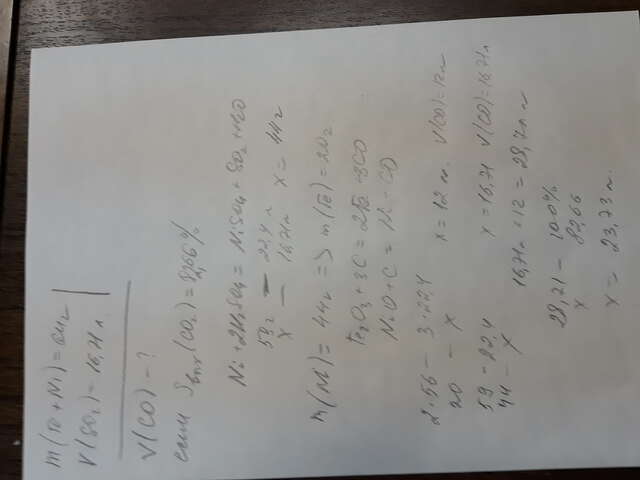 m(Fe+Ni)=64г
V(SO₂)=16,71л
V(CO) - ?
если φвых(CO₂)=82,66%
Ni + 2H₂SO₄ = NiSO₄ + SO₂ + H₂O
59г — 22,4 л
x — 16,71л x = 44г
m(Ni) = 44г => m(Fe)=20г
Fe₂O₃ + 3C = 2Fe + 3CO
NiO + C = Ni + CO
2·56 — 3·22,4
20 — x x = 12 л. V(CO)=12л
59 — 22,4
44 — x x = 16,71 V(CO)=16,71л
16,71л + 12 = 28,71л
28,71 — 100%
x 82,66
x = 23,73л.